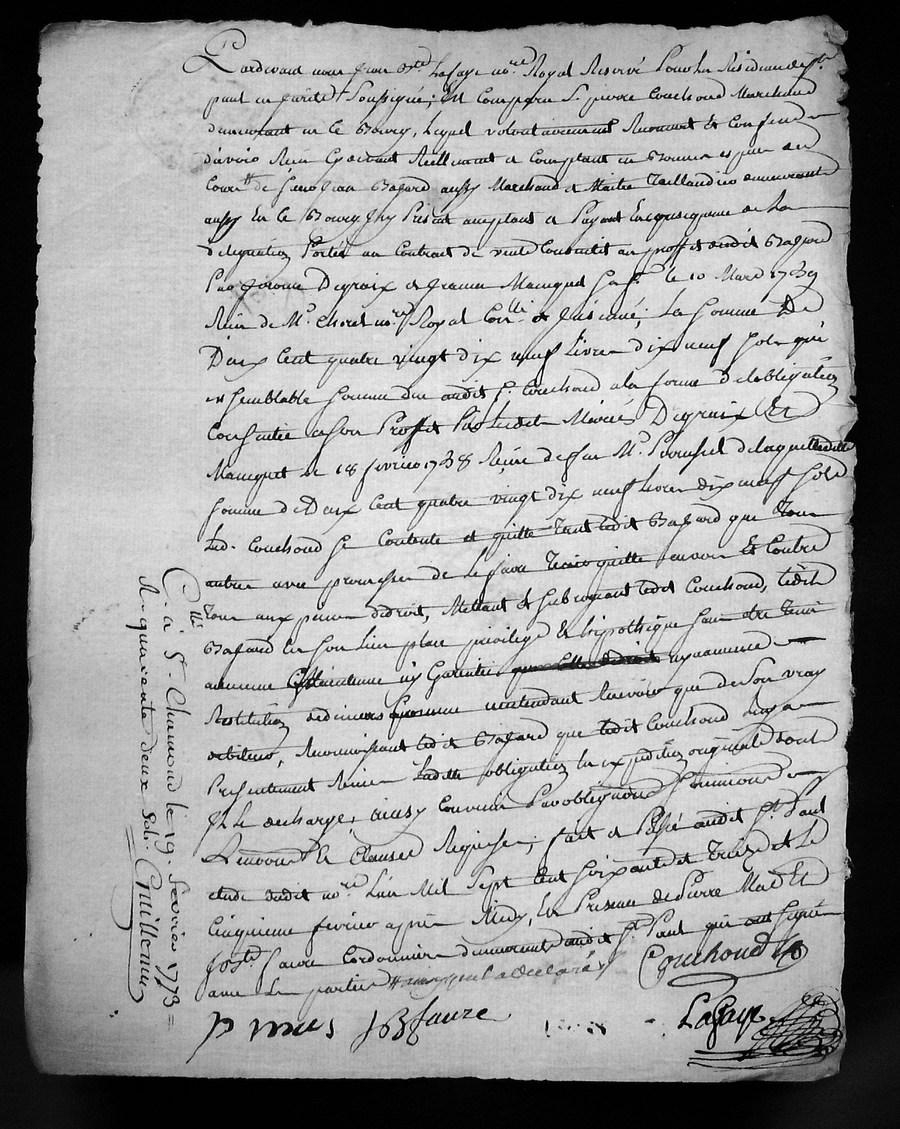 Pardevant nous Jean Bte Lafaye nore Royal Reservé Pour la Residence de St
paul en Jarêt Soussigné; est Comparu Sr pierre Couchoud Marchand
demeurant en ce Bourg, Lequel volontairement Reconnoit et Confesse
d'avoir Reçu Cydevant Reellement et Comptant en Bonnes especes au
Cours de Sr Jean Bajard aussy Marchand et Maitre Taillandier demeurant
aussy En ce Bourg Icy Present acceptant et Payant En consequence de La
delegation Portée au Contract de vente Consentit au proffit dudit Bajard
Par Jerome Degraix et le 10 Mars 1739
Reçu de Me Chorel nore Royal La Somme De
Deux Cent quatre vingt dix neuf Livres dix neuf Sols qui
en Semblable Somme due audit Sr Couchoud a la forme de lobligation
Consentie a son Proffit Par Ledits Mariés Degraix Et
Mauquet le 18 fevrier 1738 Reçue de Me de laquelle ditte
Somme de Deux Cent quatre vingt dix neuf Livres dix neuf Sols
Led. Couchoud Se Contente et quitte Tant ledit Bajard que Tous
autres avec promesse de Le faire Tenir quitte envers Et Contre
Tous aux peines de droit, Mettant et Subrogeant ledit Couchoud, ledit
Bajard En Son Lieu place privilege & hipotheque Sans etre Tenu
aucune Maintenue ny Garentie ny aucune
Restitution de deniers n'entendant Recevoir que de Son vray
debiteur, Reconnoissant ledit Bajard que ledit Couchoud Luy a
Presentement Remis Laditte obligation En expedition originale dont
Il Le decharge, ainsy Convenu Par obligations Soumissions
Renonciations & Clauses Requises; fait et Passé audit St Paul
etude dudit nore L'an Mil Sept Cent Soixante et Treize et Le
Cinquieme fevrier apres Midy, En Presence de Pierre Mas Et
Josth faure Cordonnier demeurants audit St Paul qui ont Signé
avec Les parties
Couchoud
p mas JoB faure
Lafaye
Cllé à St Chamond le 19. fevrier 1773 =
R. quarante deux Sols. Guilleme